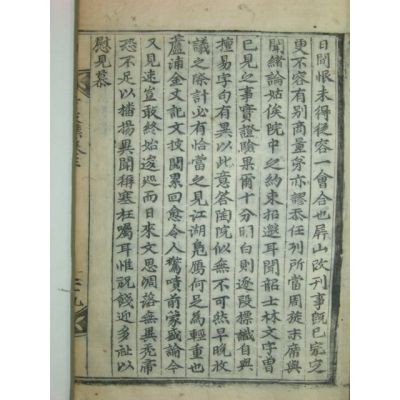 日間恨未得從容一會合也屛山改刊事旣已完定
更不容有別商量第亦謬忝任列所當周旋末席與
聞緖論姑俟院中之約束招邀耳聞韶士林文字曾
已見之事實證驗果爾十分明白則逐段標識自與
擅易字句有異以此意答陶院似無不可然早晩收
議之際計必有恰當之見江湖鳧鴈何足為輕重也
蘆浦金丈記文披閱累回愈令人驚嘖前蒙盛諭令
又見速豈敢終始逡巡而日來文思凋落無異禿帚
恐不足以播揚異聞稱塞枉囑耳惟祝餞迎多祉以
慰見慕